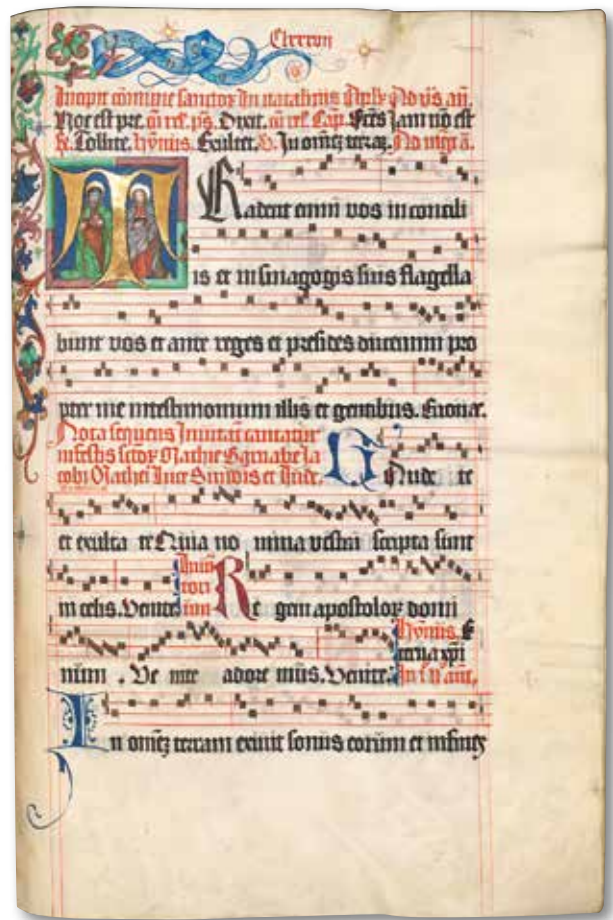 Clxxxvii
Incipit cōmune sanctoꝝ In nataliciis Aplꝝ Ad vꝰs añ.
Hoc est pre. cū rel. pꝰs. Dixit. cū rel. Cap. Frēs Jam nō est
R. Tollite. hymnus. Exultet. V. In omnē terrā. Ad mgꝭ a.
Tradent enim vos in concili
is et in sinagogis suis flagella
bunt vos et ante reges et presides ducemini pro
pter me in testimonium illis et gentibus. Euouae.
Nota sequens Inuitaī cantatur
in festis sctoꝝ Mathie Barnabe Ja
cobi Mathei Luce Simonis et Jude.
Gaude te
et exulta te Quia no mina vestra scripta sunt
in celis. Venite. Inui
tori
um
Re gem apostoloꝝ domi
num . Ve nite adore mus. Venite.
hymnus. E
terna xpi
In i n añt.
In omnē terram exiuit sonus eorum et in fines